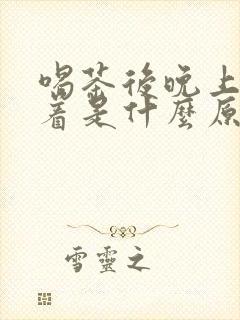 喝茶後晚上
着是什麼原
雪靈之